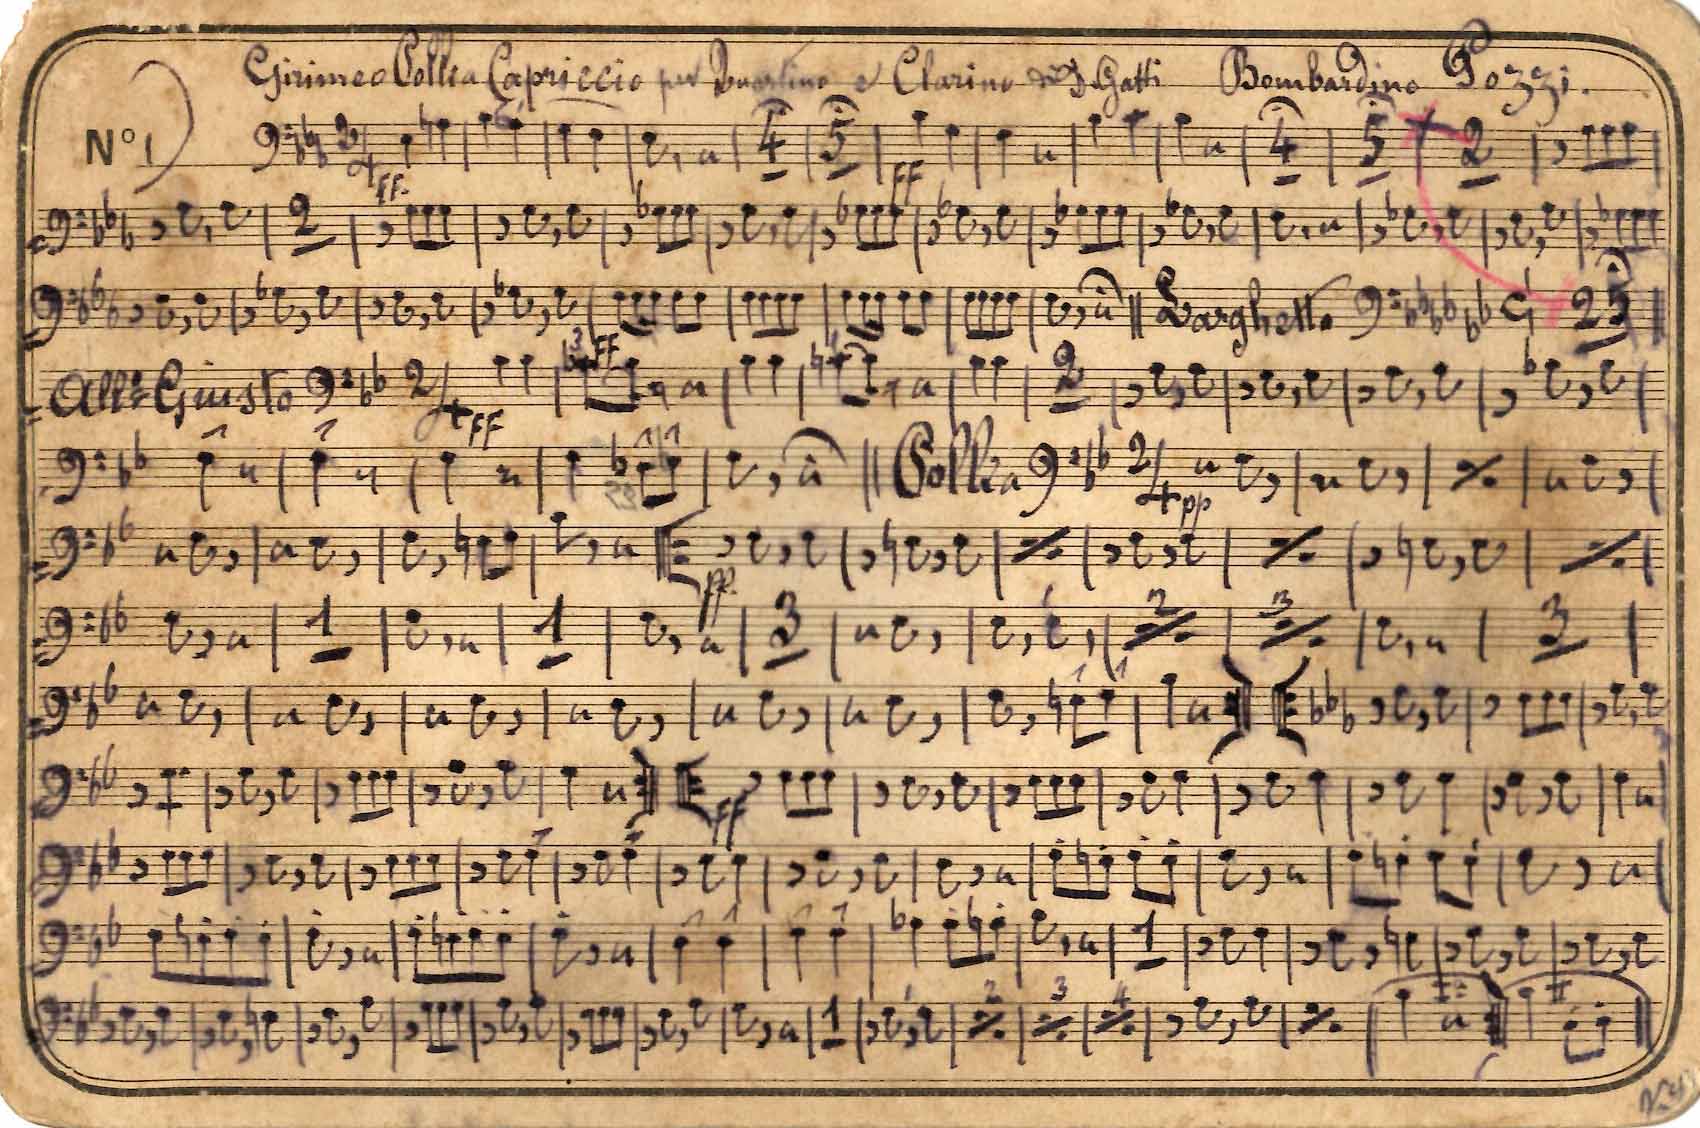 Nº 1
Girimeo Polka Capriccio per Quartino e Clarino di Gatti Bombardino Pozzi.
2/4 FF. 4 5 FF 4 5 2
2
Larghetto 2 5
All.º Giusto 2/4 FF 3 FF 2
Polka 2/4 pp
pp.
1 1 3 2 3 3
FF
1
1 2 3 4 I II